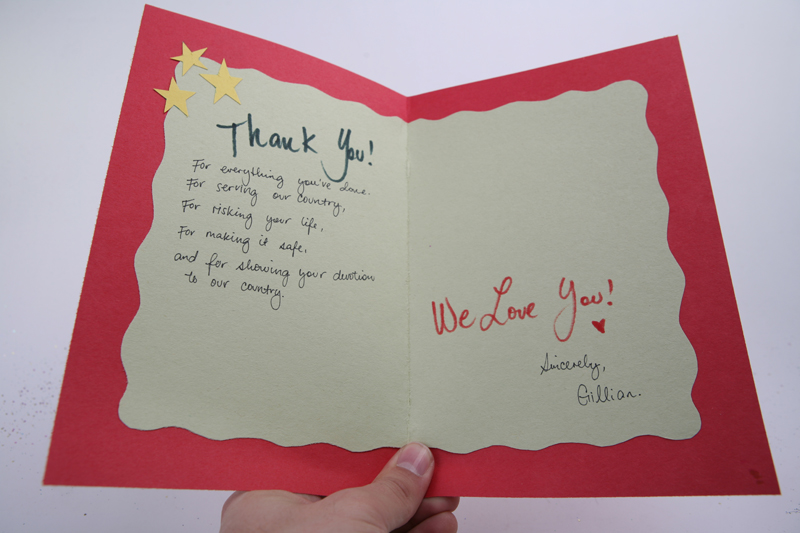 Thank You!
For everything you've done.
For serving our country,
For risking your life,
For making it safe,
and for showing your devotion
to our country.
We Love You!
Sincerely,
Gillian.